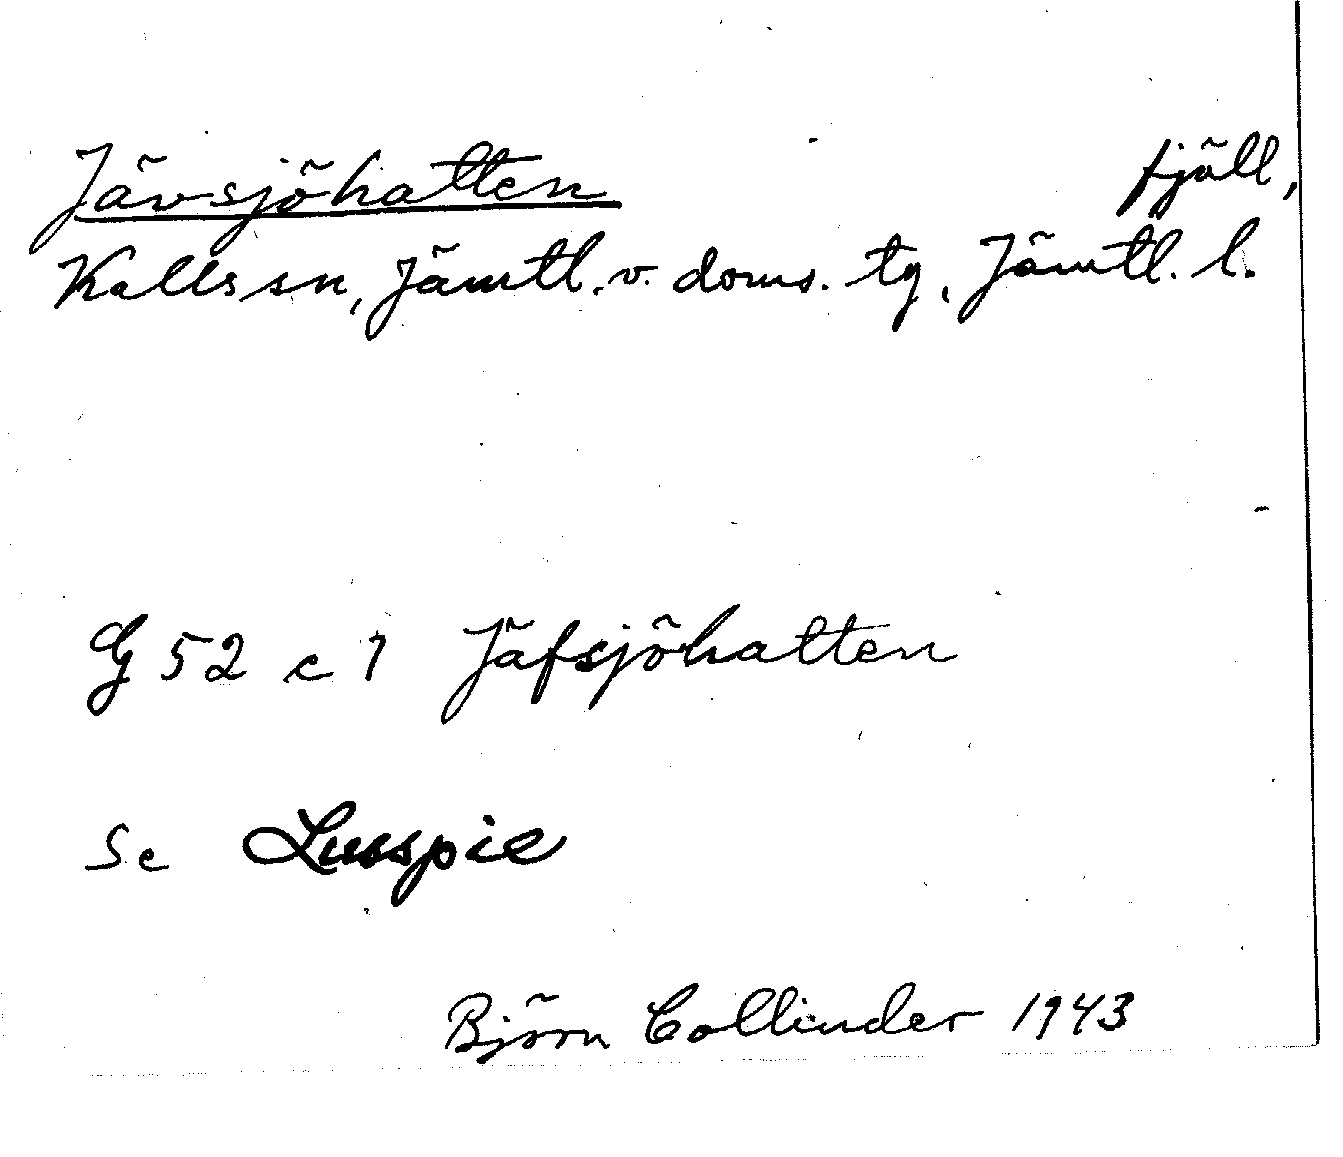 Jävsjöhatten fjäll,
Kalls sn, Jämtl. v. doms. tg, Jämtl. l.
G 52 c 1 Jäfsjöhatten
Se Lusspie
Björn Collinder 1943